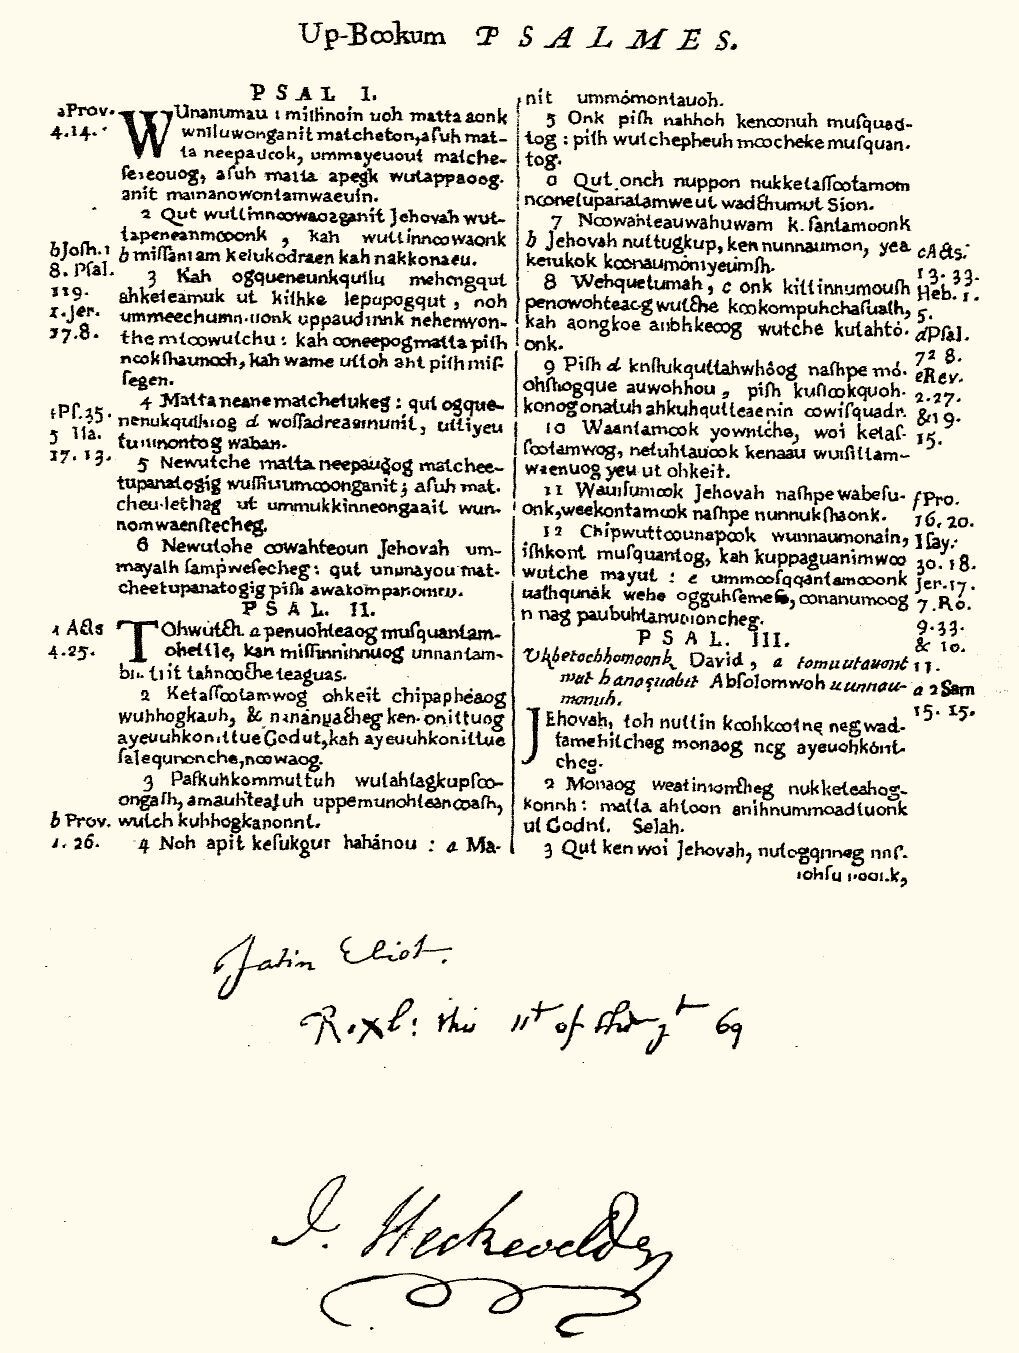 Up-Bꝏkum PSALMES.
PSAL I.
aProv.
4.14.
WUnanumau ı miſſinnin uoh matta aonk
wutluwonganit matcheton, aſuh mat-
ta neepaucok, ummayeuout matche-
ſeſeouog, aſuh matta apegk wutappaoog-
anit mamanowontamwaeuin.
2 Qut wuttinnꝏwaoƨganit Jehovah wut-
tapeneanmꝏonk, kah wuttinnꝏwaonk
bJoſh.1
8. Pſal.
119.
1.Jer.
17.8.
b miſſantam keſukodraen kah nakkonaeu.
3 Kah ogqueneunkquttu mehtugqut
ahketeamuk ut kiſhke sepupogqut, noh
ummeechummuonk uppaudtunk nehenwon-
the mtꝏwutchu: kah ꝏneepogmatta piſh
nꝏkſhaunꝏh, kah wame uttoh ant piſh miſ-
ſegen.
4 Matta neane matchetukeg: qut ogque-
cPſ.35.
5 Iſa.
17. 13.
nenukqutſhog d woſſadreaemunit, uttiyeu
tummontog waban.
5 Newutche matta neepauꝏog matchee-
tupanatogig wuſſittumꝏonganit; aſuh mat-
cheu-ſethag ut ummukkinneongaait wun-
nomwaenſtecheg.
6 Newutche ꝏwahteoun Jehovah um-
mayaſh ſampweſecheg: qut ummayou mat-
cheetupanatogig piſh awakompanomꝏ.
PSAL. II.
a Acts
4.25.
TOhwutch a penuohteaog muſquantam-
ohettit, kah miſſinninnuog unnantam-
tꝏthe teaguas.
2 Ketaſſꝏtamwog ohkeit chipaphéaog
wuhhogkauh, & nananuacheg ken-onittuog
ayeuuhkonittue Godut, kah ayeuuhkonittue
ſalequnonche, nꝏwaog.
3 Paſkuhkommuttuh wutahtagkupſꝏ-
ongaſh, amauhteatuh uppemunohteancoaſh,
b Prov.
1. 26.
wutch kuhhogkanonnt.
4 Noh apit keſukgur hahánou: a Ma-
nit ummómontauoh.
5 Onk piſh nahhoh kenꝏnuh muſquad-
tog: piſh wutchepheuh mꝏcheke muſquan-
tog.
6 Qut onch nuppon nukketaſſꝏtamom
nꝏnetupanatamwe ut wadchumut Sion.
7 Nꝏwahteauwahuwam k. ſantamoonk
b Jehovah nuttugkup, ken nunnaumon, yea
cActs:
13. 33.
Heb. 1.
5.
keſukok kꝏnaumoniyeumſh.
8 Wehquetumah, c onk kittinnumouſh
penowohteaog wutche kꝏkompuhchaſuaſh,
kah aongkoe auohkeꝏg wutche kutahtó-
dPſal.
72 8.
eRev.
2.27.
&19.
15.
onk.
9 Piſh d knſhukquttahwhóog naſhpe mó-
ohſhogque auwohhou, piſh kuſſꝏkquoh-
konogonatuh ahkuhqutteaenin ꝏwiſquadr.
10 Waantamꝏk yowntche, woi ketaſ-
ſꝏtamwog, netuhtauꝏk kenaau wuſittam-
waenuog yeu ut ohkeit.
11 Wauſſumꝏk Jehovah naſhpe wabeſu-
fPro.
16. 20.
Iſay:
30. 18.
Jer.17.
7.Ro.
9.33.
& 10.
11.
onk, weekontamꝏk naſhpe nunnukſhaonk.
12 Chipwuttꝏunapꝏk wunnaumonain,
iſhkont muſquantog, kah kuppaguanimwꝏ
wutche mayut: e ummoſqqantamꝏonk
uathqunak wehe ogguhſemeſe, ꝏnanumoog
n nag paubuhtanumoncheg.
PSAL. III.
Ukketoohhomoonk David, a tomuutauont
wut hanaquabit Abſolomwoh uunnau-
a 2Sam
15. 15.
monuh.
JEhovah, toh nuttin kꝏhkꝏtne neg wad-
tamehitcheg monaog neg ayeuohkónt-
cheg.
2 Monaog weatinomcheg nukketeahog-
konnh: matta ahtoon anihnummoadtuonk
ut Godnt. Selah.
3 Qut ken woi Jehovah, nutogqnneg nnſ-
John Eliot.
Roxb: this 11t of the 7t 69
J. Heckewelder